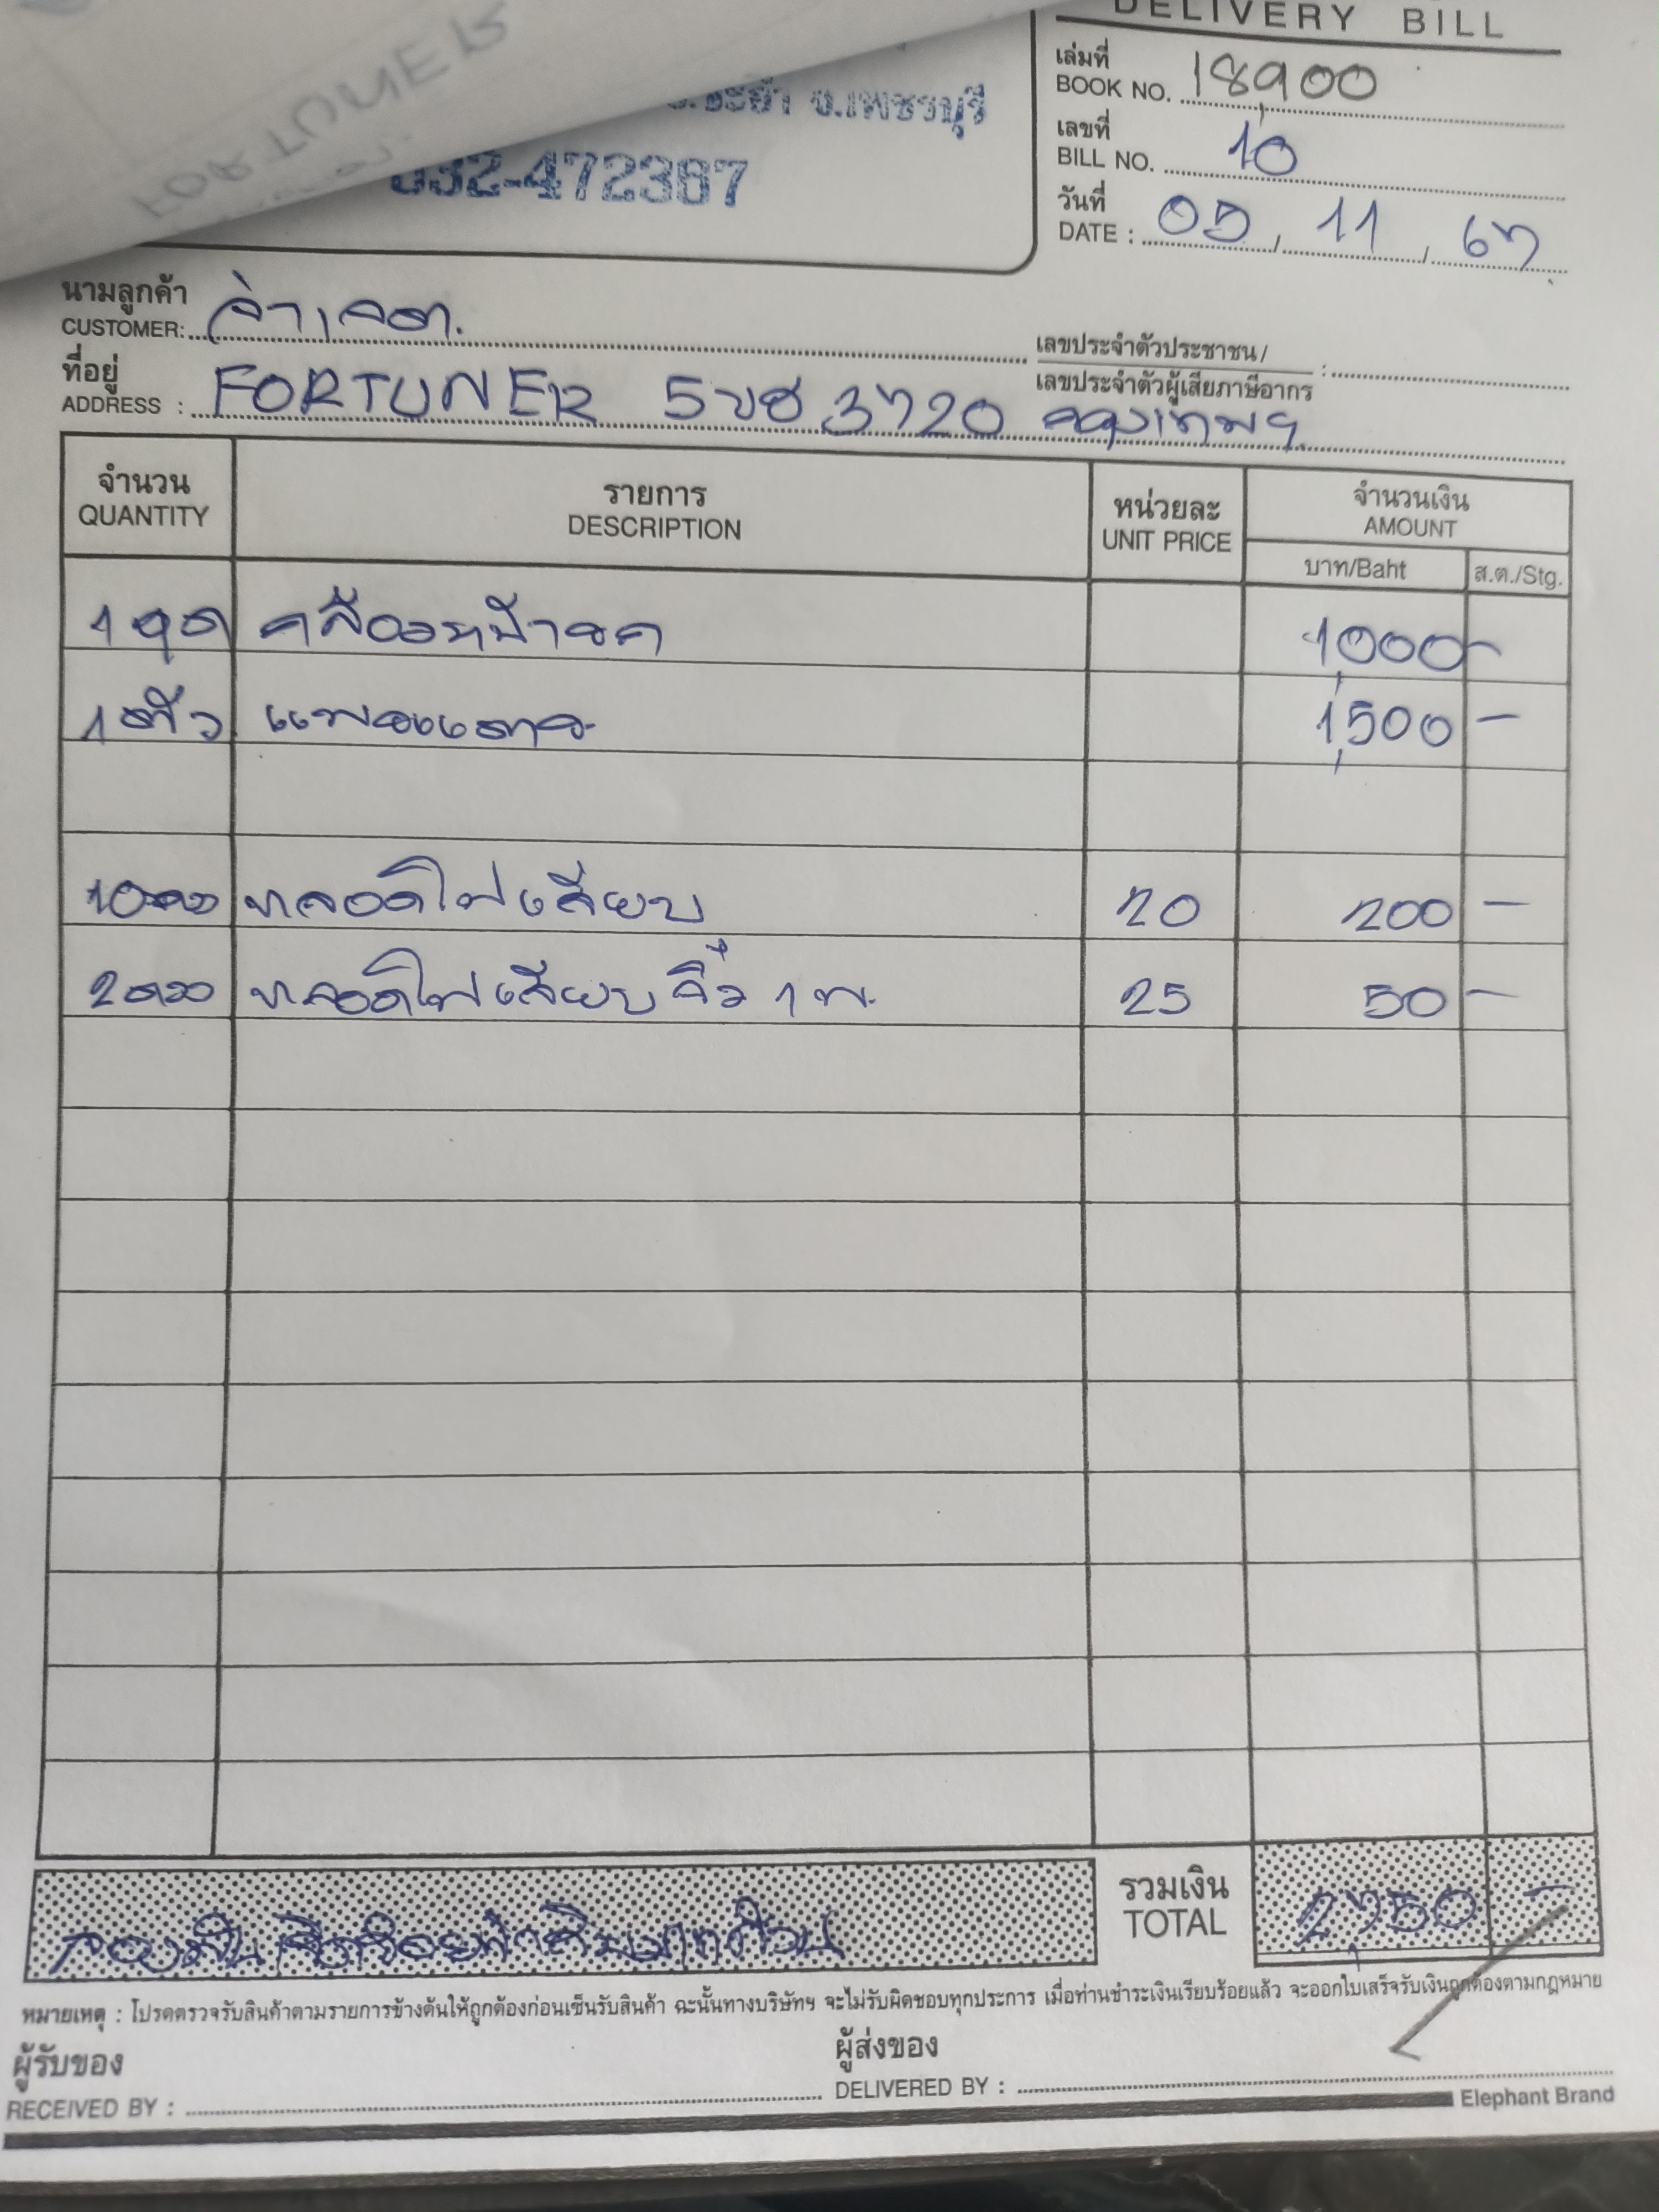 FORTUNER
DELIVERY BILL
จ.เพชรบุรี
032-472387
เล่มที่
BOOK NO. 18,900
เลขที่
BILL NO. 10
วันที่
DATE : 05 / 11 / 67
นามลูกค้า
CUSTOMER: จ่าเจต.
เลขประจำตัวประชาชน /
เลขประจำตัวผู้เสียภาษีอากร :
ที่อยู่
ADDRESS : FORTUNER 5ขช 3720 กรุงเทพฯ
จำนวน รายการ หน่วยละ จำนวนเงิน
QUANTITY DESCRIPTION UNIT PRICE AMOUNT
บาท/Baht ส.ต./Stg.
1 ชุด หน้ารถ 1,000 -
1 ตัว 1,500 -
10 ดวง หลอดไฟเสียบ 20 200 -
2 ดวง หลอดไฟเสียบจิ๋ว 1 พ. 25 50 -
รวมเงิน
TOTAL 2,750 -
หมายเหตุ : โปรดตรวจรับสินค้าตามรายการข้างต้นให้ถูกต้องก่อนเซ็นรับสินค้า ฉะนั้นทางบริษัทฯ จะไม่รับผิดชอบทุกประการ เมื่อท่านชำระเงินเรียบร้อยแล้ว จะออกใบเสร็จรับเงินถูกต้องตามกฎหมาย
ผู้รับของ
RECEIVED BY :
ผู้ส่งของ
DELIVERED BY :
Elephant Brand